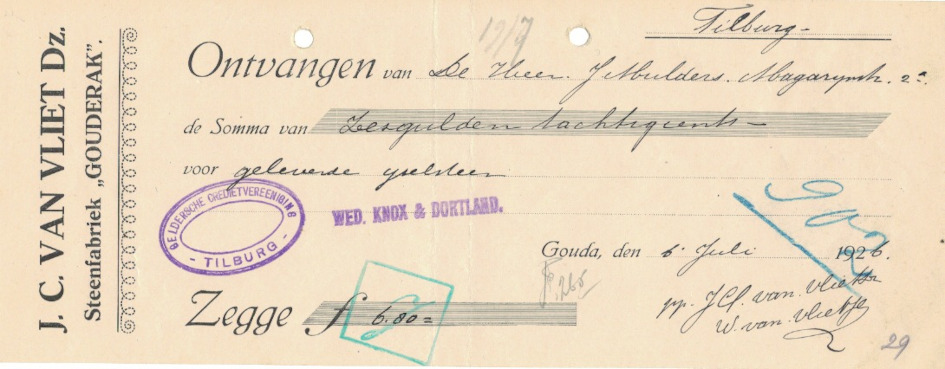 J. C. VAN VLIET Dz.
Steenfabriek „GOUDERAK”.
12/7
Tilburg-
Ontvangen van De Heer. J Mulders. 2a.
de Somma van Zesgulden tachtigcents-
voor geleverde ijselsteen
GELDERSCHE CREDIETVEREENIGING
- TILBURG -
WED. KNOX & DORTLAND.
Gouda, den 6 Juli 1926.
265
Zegge f 6.80=
pp. J.C. van Vliet
W. van Vliet
29